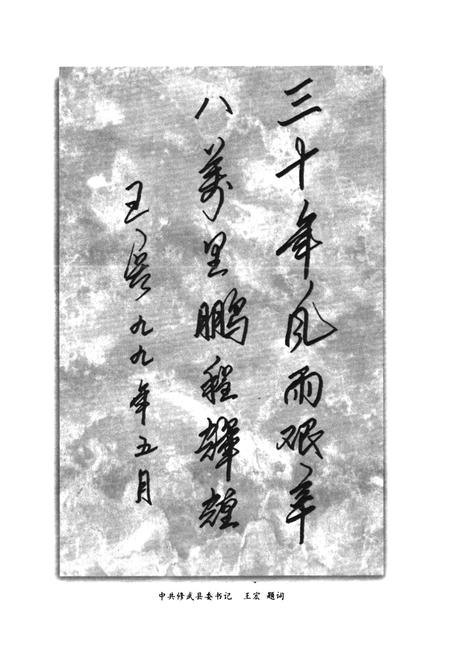 三十年风雨艰辛
八萬里鹏程輝煌
王宏 九九年五月
中共修武县委书记 王宏 题词